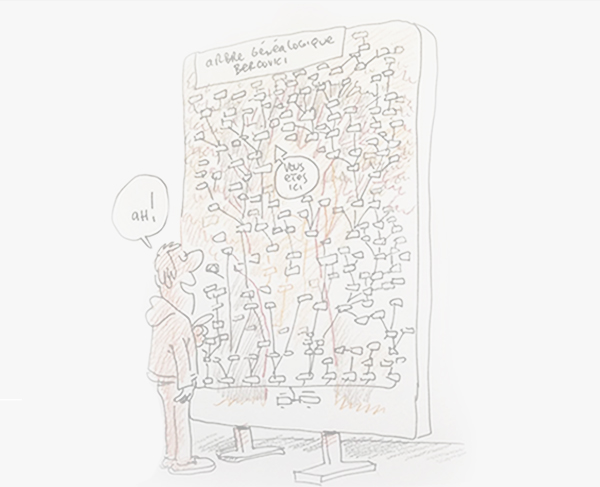 aRBRE GéNéaLOGIQUE
BERCOVICI
VOUS
ETES
ICI
aH!